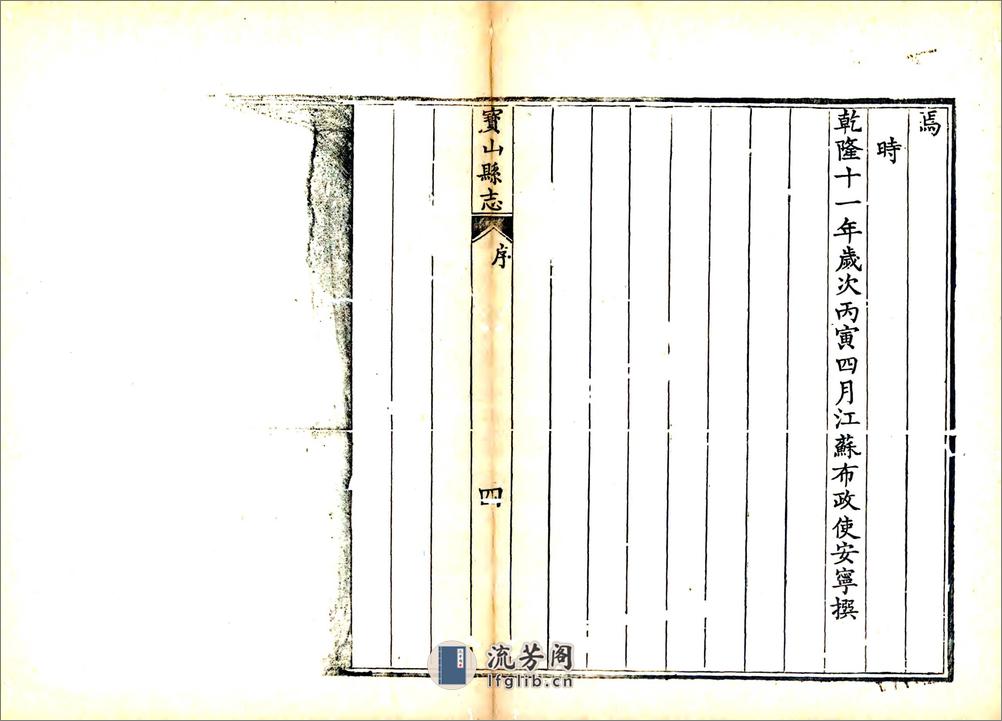 焉
時
乾隆十一年歲次丙寅四月江蘇布政使安寧撰
寶山縣志
序
四
流芳阁
lfglib.cn